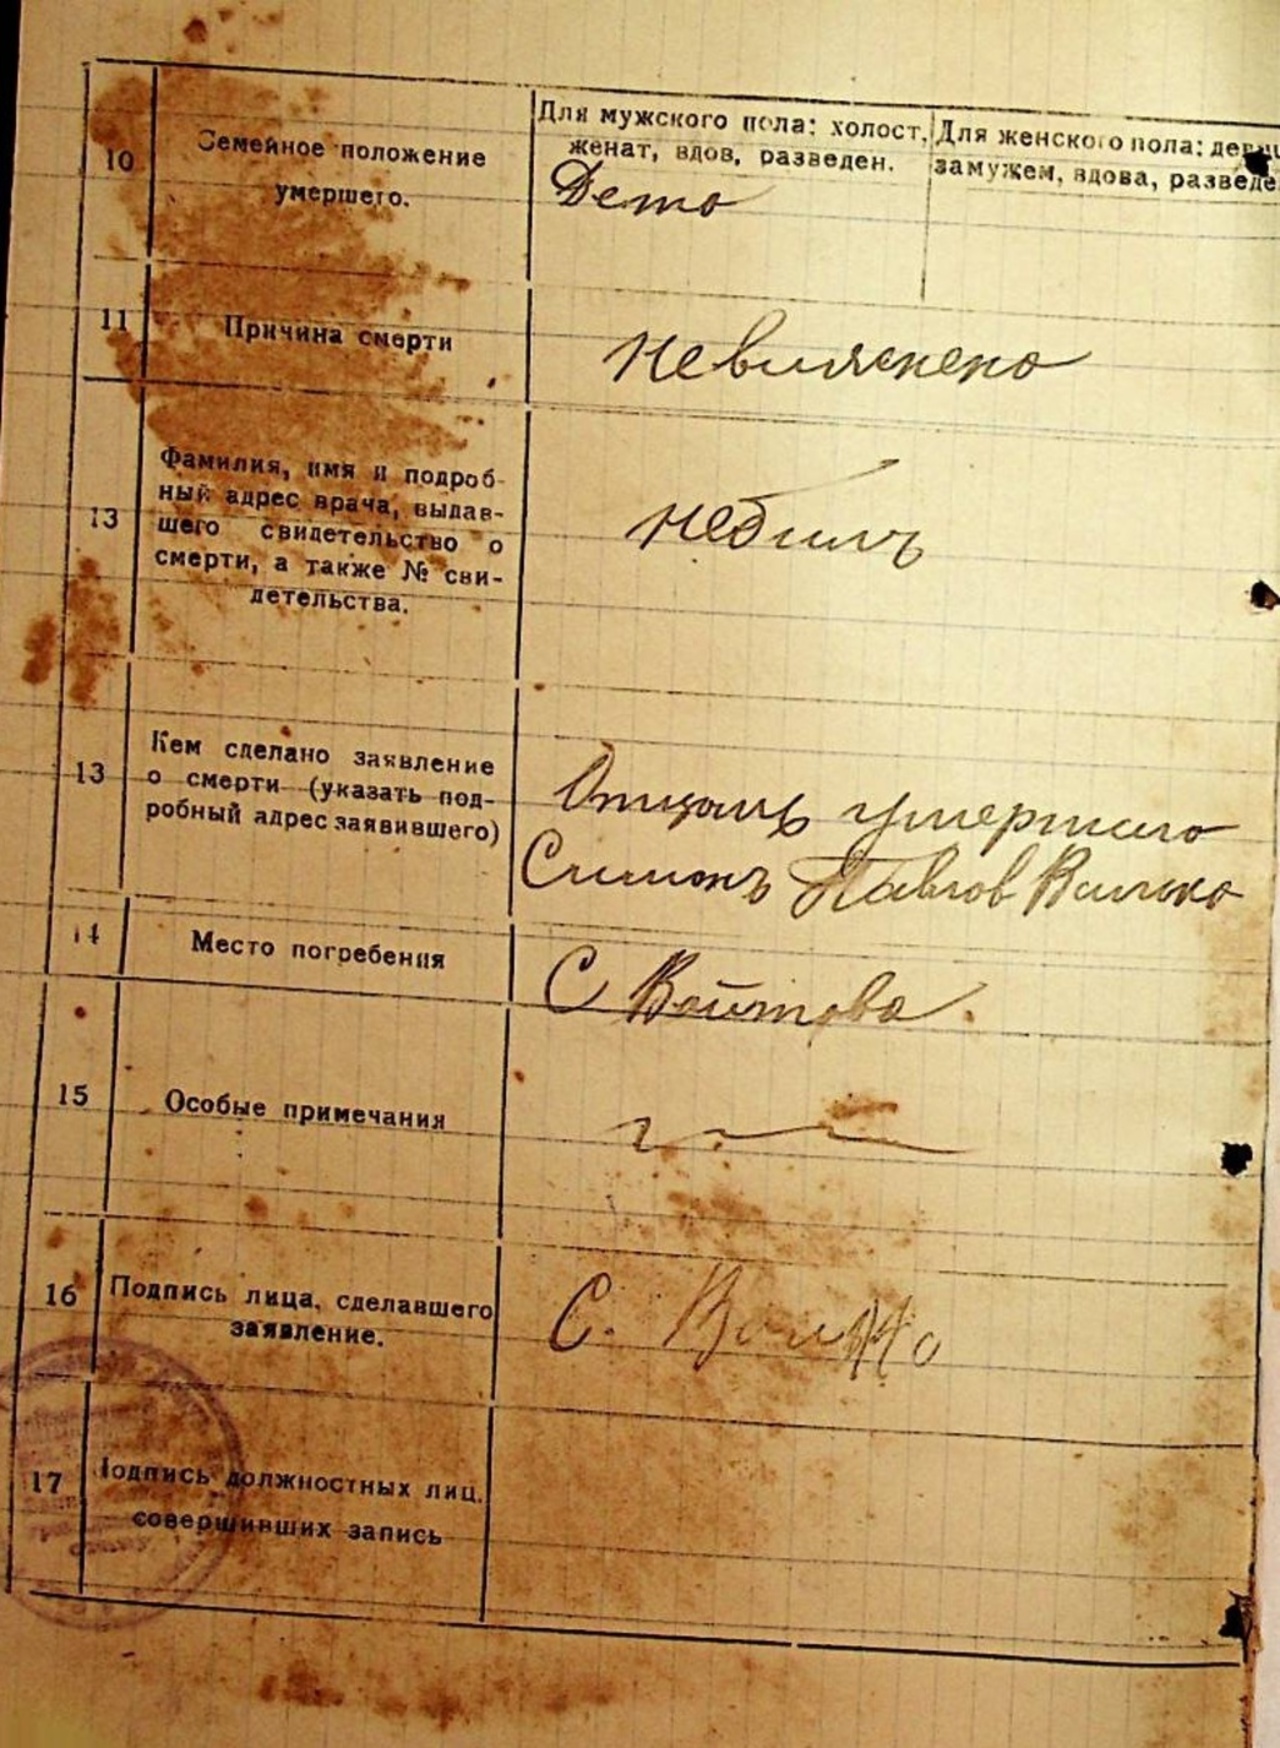 10
Семейное положение
умершего.
Для мужского пола: холост,
женат, вдов, разведен.
Для женского пола: девиц
замужем, вдова, разведе
Дето
11
Причина смерти
невияснено
13
Фамилия, имя и подроб-
ный адрес врача, выдав-
шего свидетельство о
смерти, а также № сви-
детельства.
небилъ
13
Кем сделано заявление
о смерти (указать под-
робный адрес заявившего)
Отцомъ умершаго
Симонъ Павлов
14
Место погребения
С Войтова.
15
Особые примечания
16
Подпись лица, сделавшего
заявление.
С.
17
Подпись должностных лиц.
совершивших запись